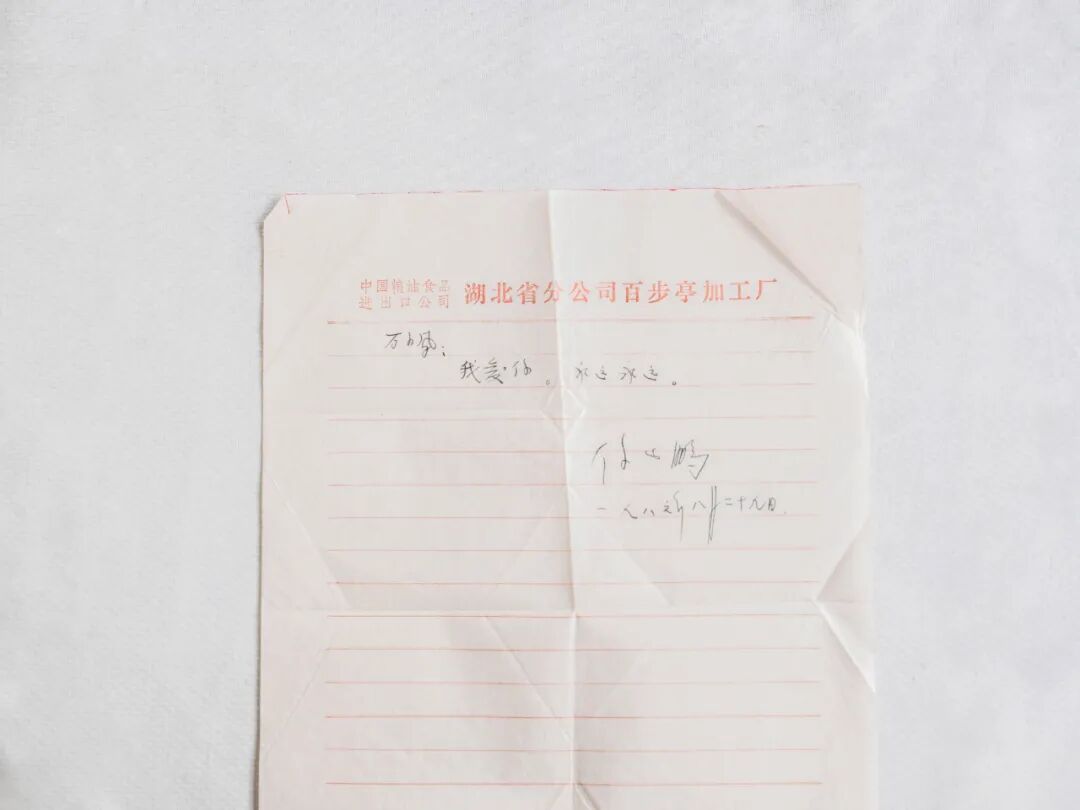 中国粮油食品
进出口公司
湖北省分公司百步亭加工厂
我爱你。永远永远。
一九八六年八月二十九日